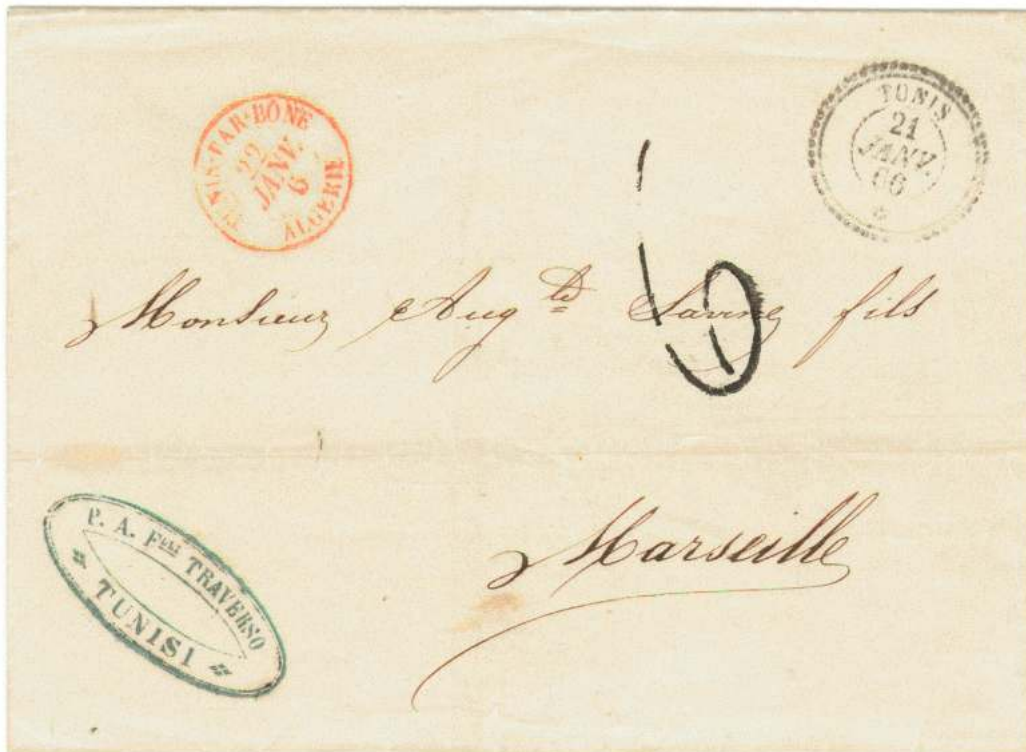 TUNIS·PAR·BÔNE
22
JANV.
6
ALGERIE
TUNIS
21
JANV.
66
6
Monsieur Aug te Savine fils
Marseille
P. A. Flli TRAVERSO
TUNISI